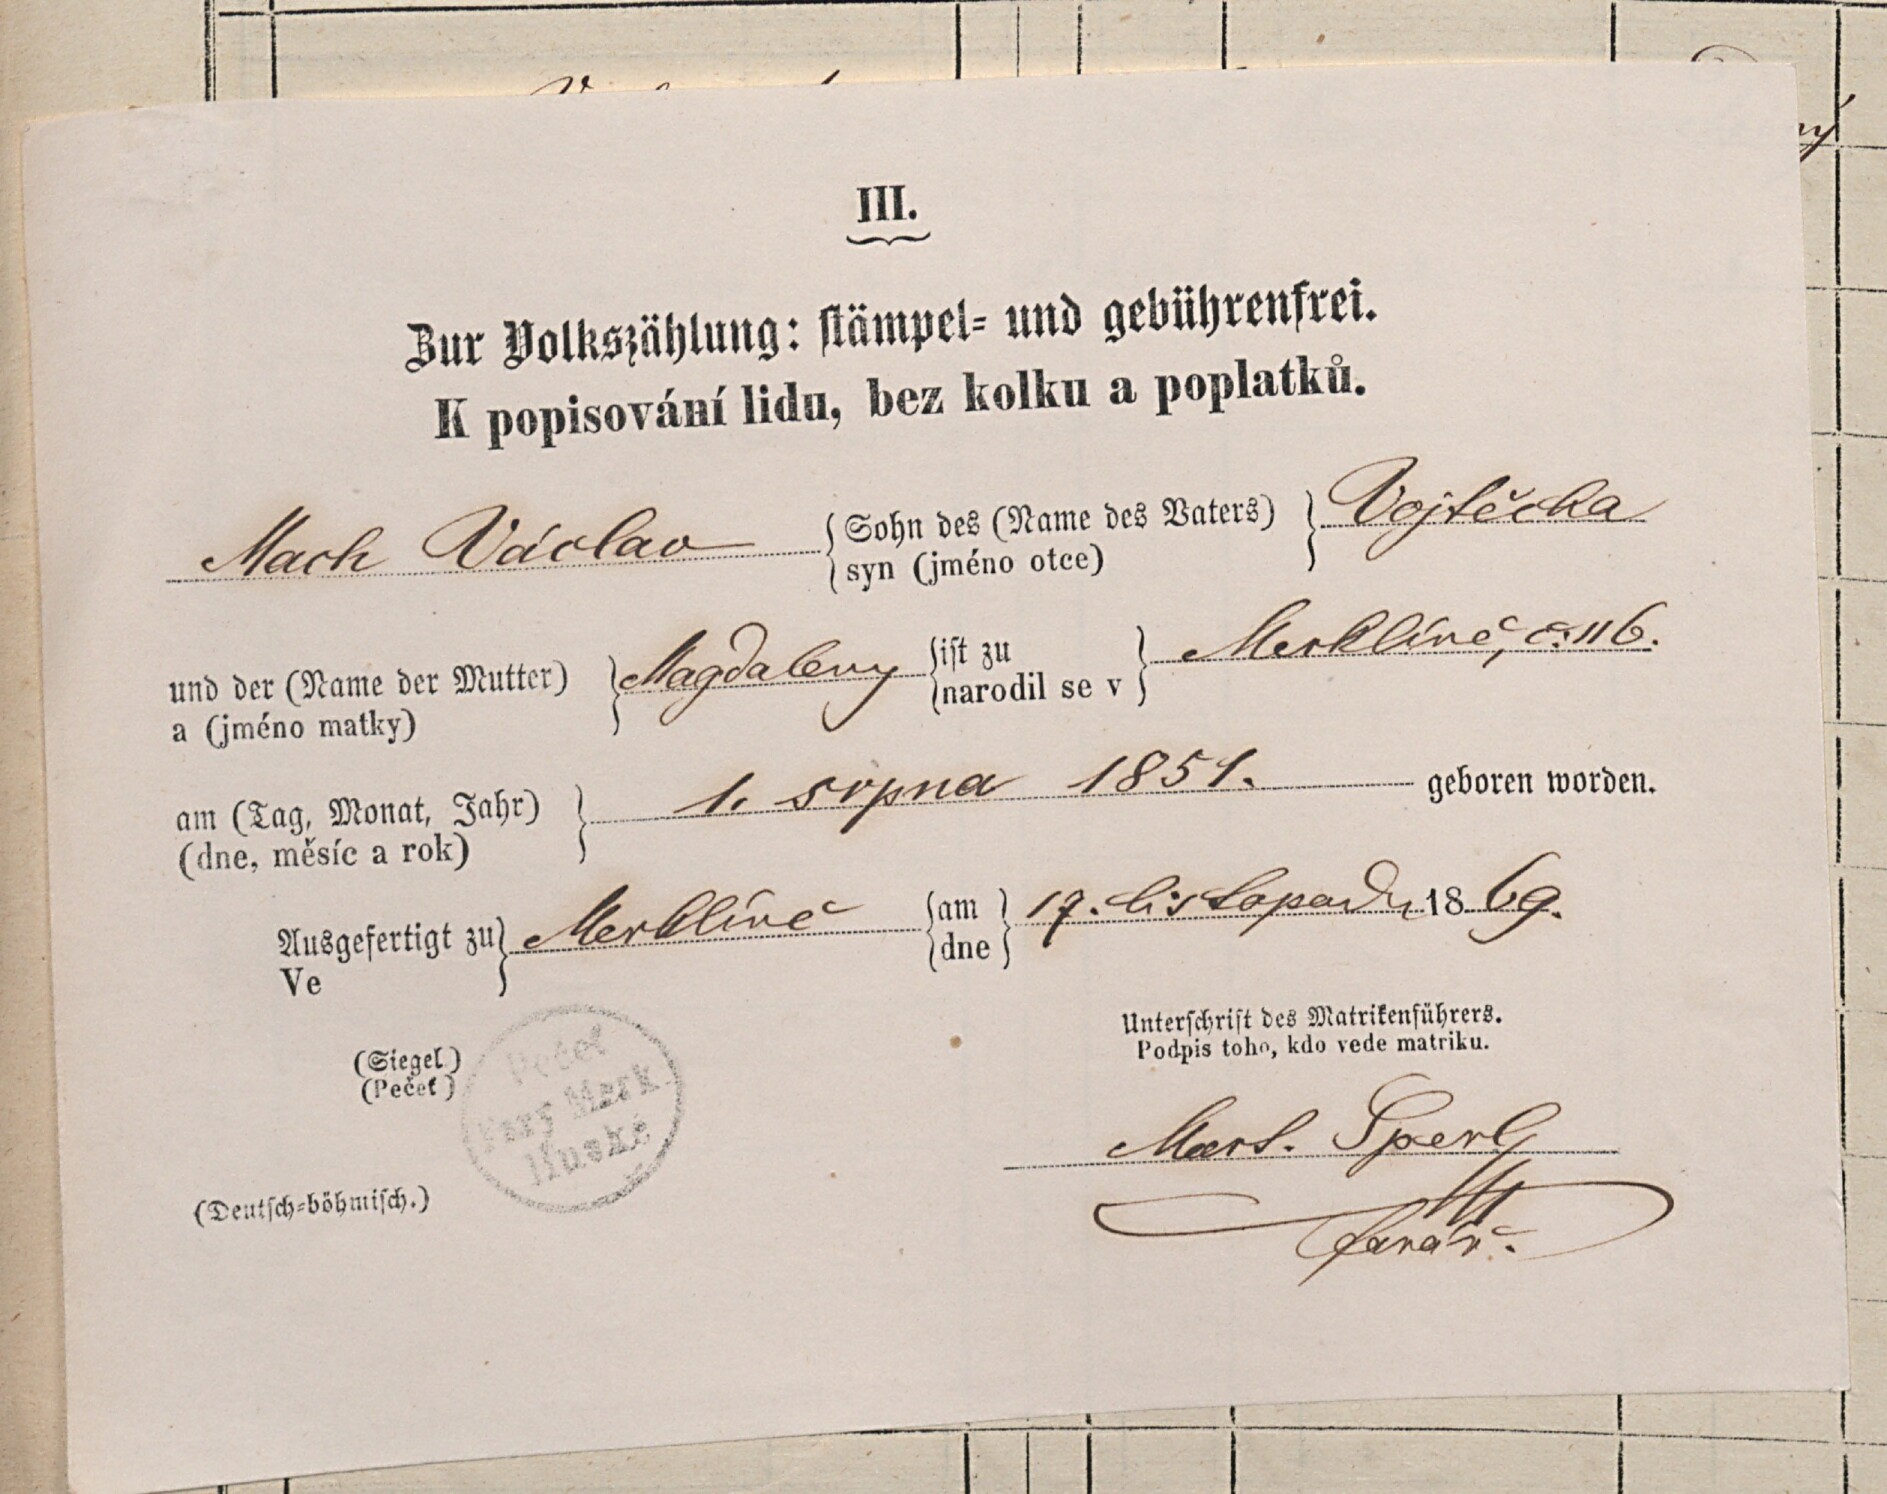 III.
Zur Volkszählung: stämpel- und gebührenfrei.
K popisování lidu, bez kolku a poplatků.
Mach Václav { Sohn des (Name des Vaters) } Vojtěcha
syn (jméno otce)
und der (Name der Mutter) } Magdaleny { ist zu } Merklíně, č. 116.
a (jméno matky) narodil se v
am (Tag, Monat, Jahr) } 1. srpna 1851. geboren worden.
(dne, měsíc a rok)
Ausgefertigt zu } Merklíně { am } 17. listopadu 1869.
Ve dne
Unterschrift des Matrikenführers.
Podpis toho, kdo vede matriku.
(Siegel.)
(Pečeť)
Pečeť
Fary Merk
línské
Mart. Šperl
farář.
(Deutsch-böhmisch.)